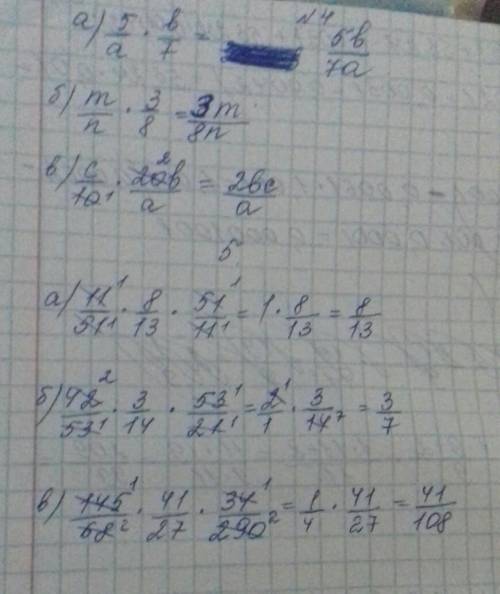 №4
а) 5/a · b/7 = 5b/7a
б) m/n · 3/8 = 3m/8n
в) c/10¹ · 20²b/a = 2bc/a
5
а) 11¹/51¹ · 8/13 · 51¹/11¹ = 1 · 8/13 = 8/13
б) 42²/53¹ · 3/14 · 53¹/21¹ = 2¹/1 · 3/14⁷ = 3/7
в) 145¹/68² · 41/27 · 34¹/290² = 1/4 · 41/27 = 41/108